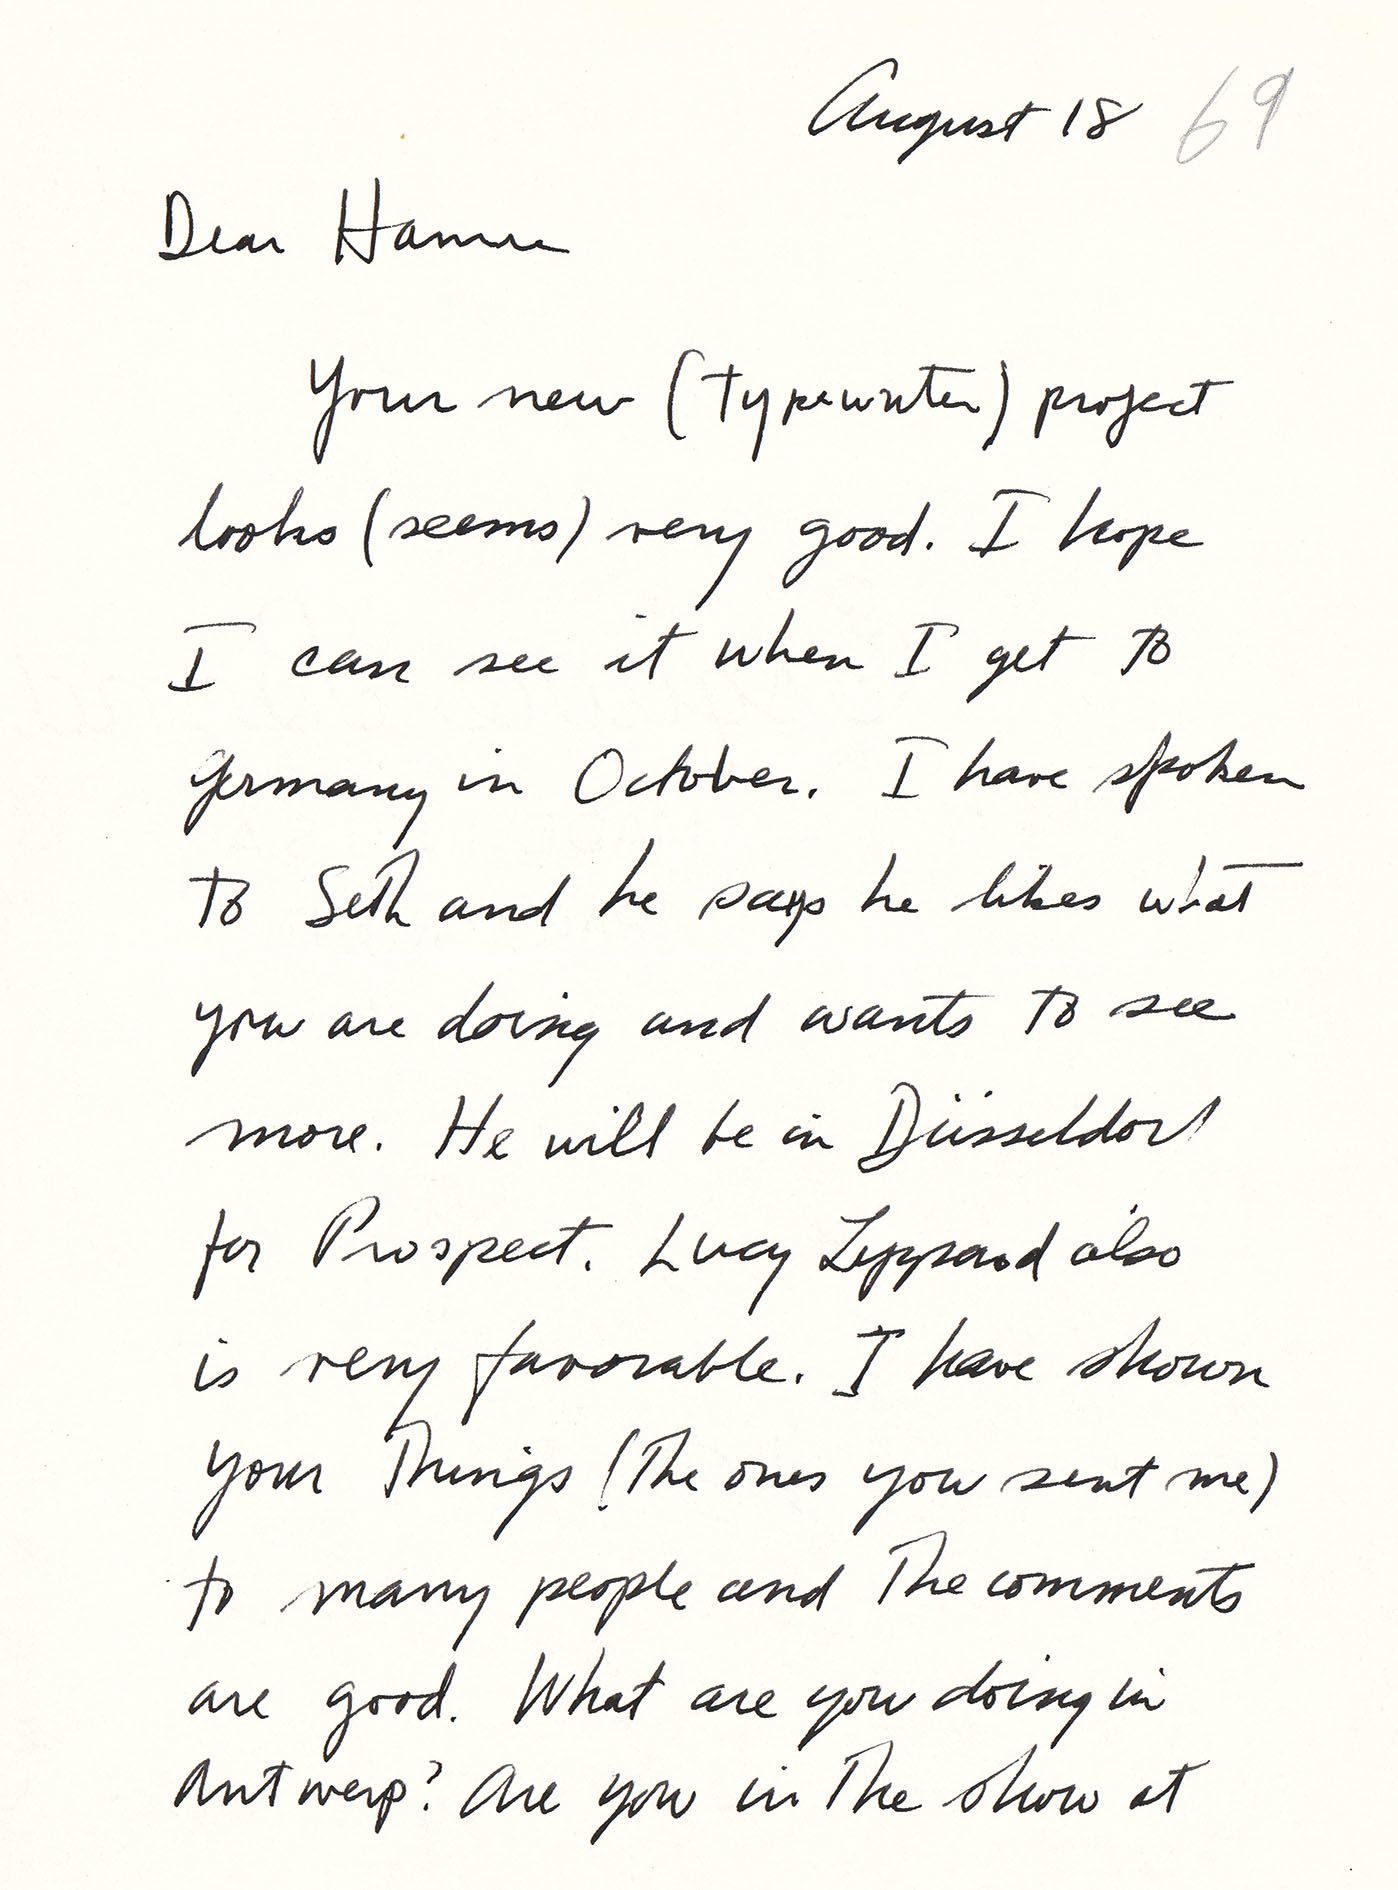 August 18 69
Dear Hanne
Your new (typewriter) project
looks (seems) very good. I hope
I can see it when I get to
Germany in October. I have spoken
to Seth and he says he likes what
you are doing and wants to see
more. He will be in Düsseldorf
for Prospect. Lucy Lippard also
is very favorable. I have shown
your Things (The ones you sent me)
to many people and The comments
are good. What are you doing in
Antwerp? Are you in The show at